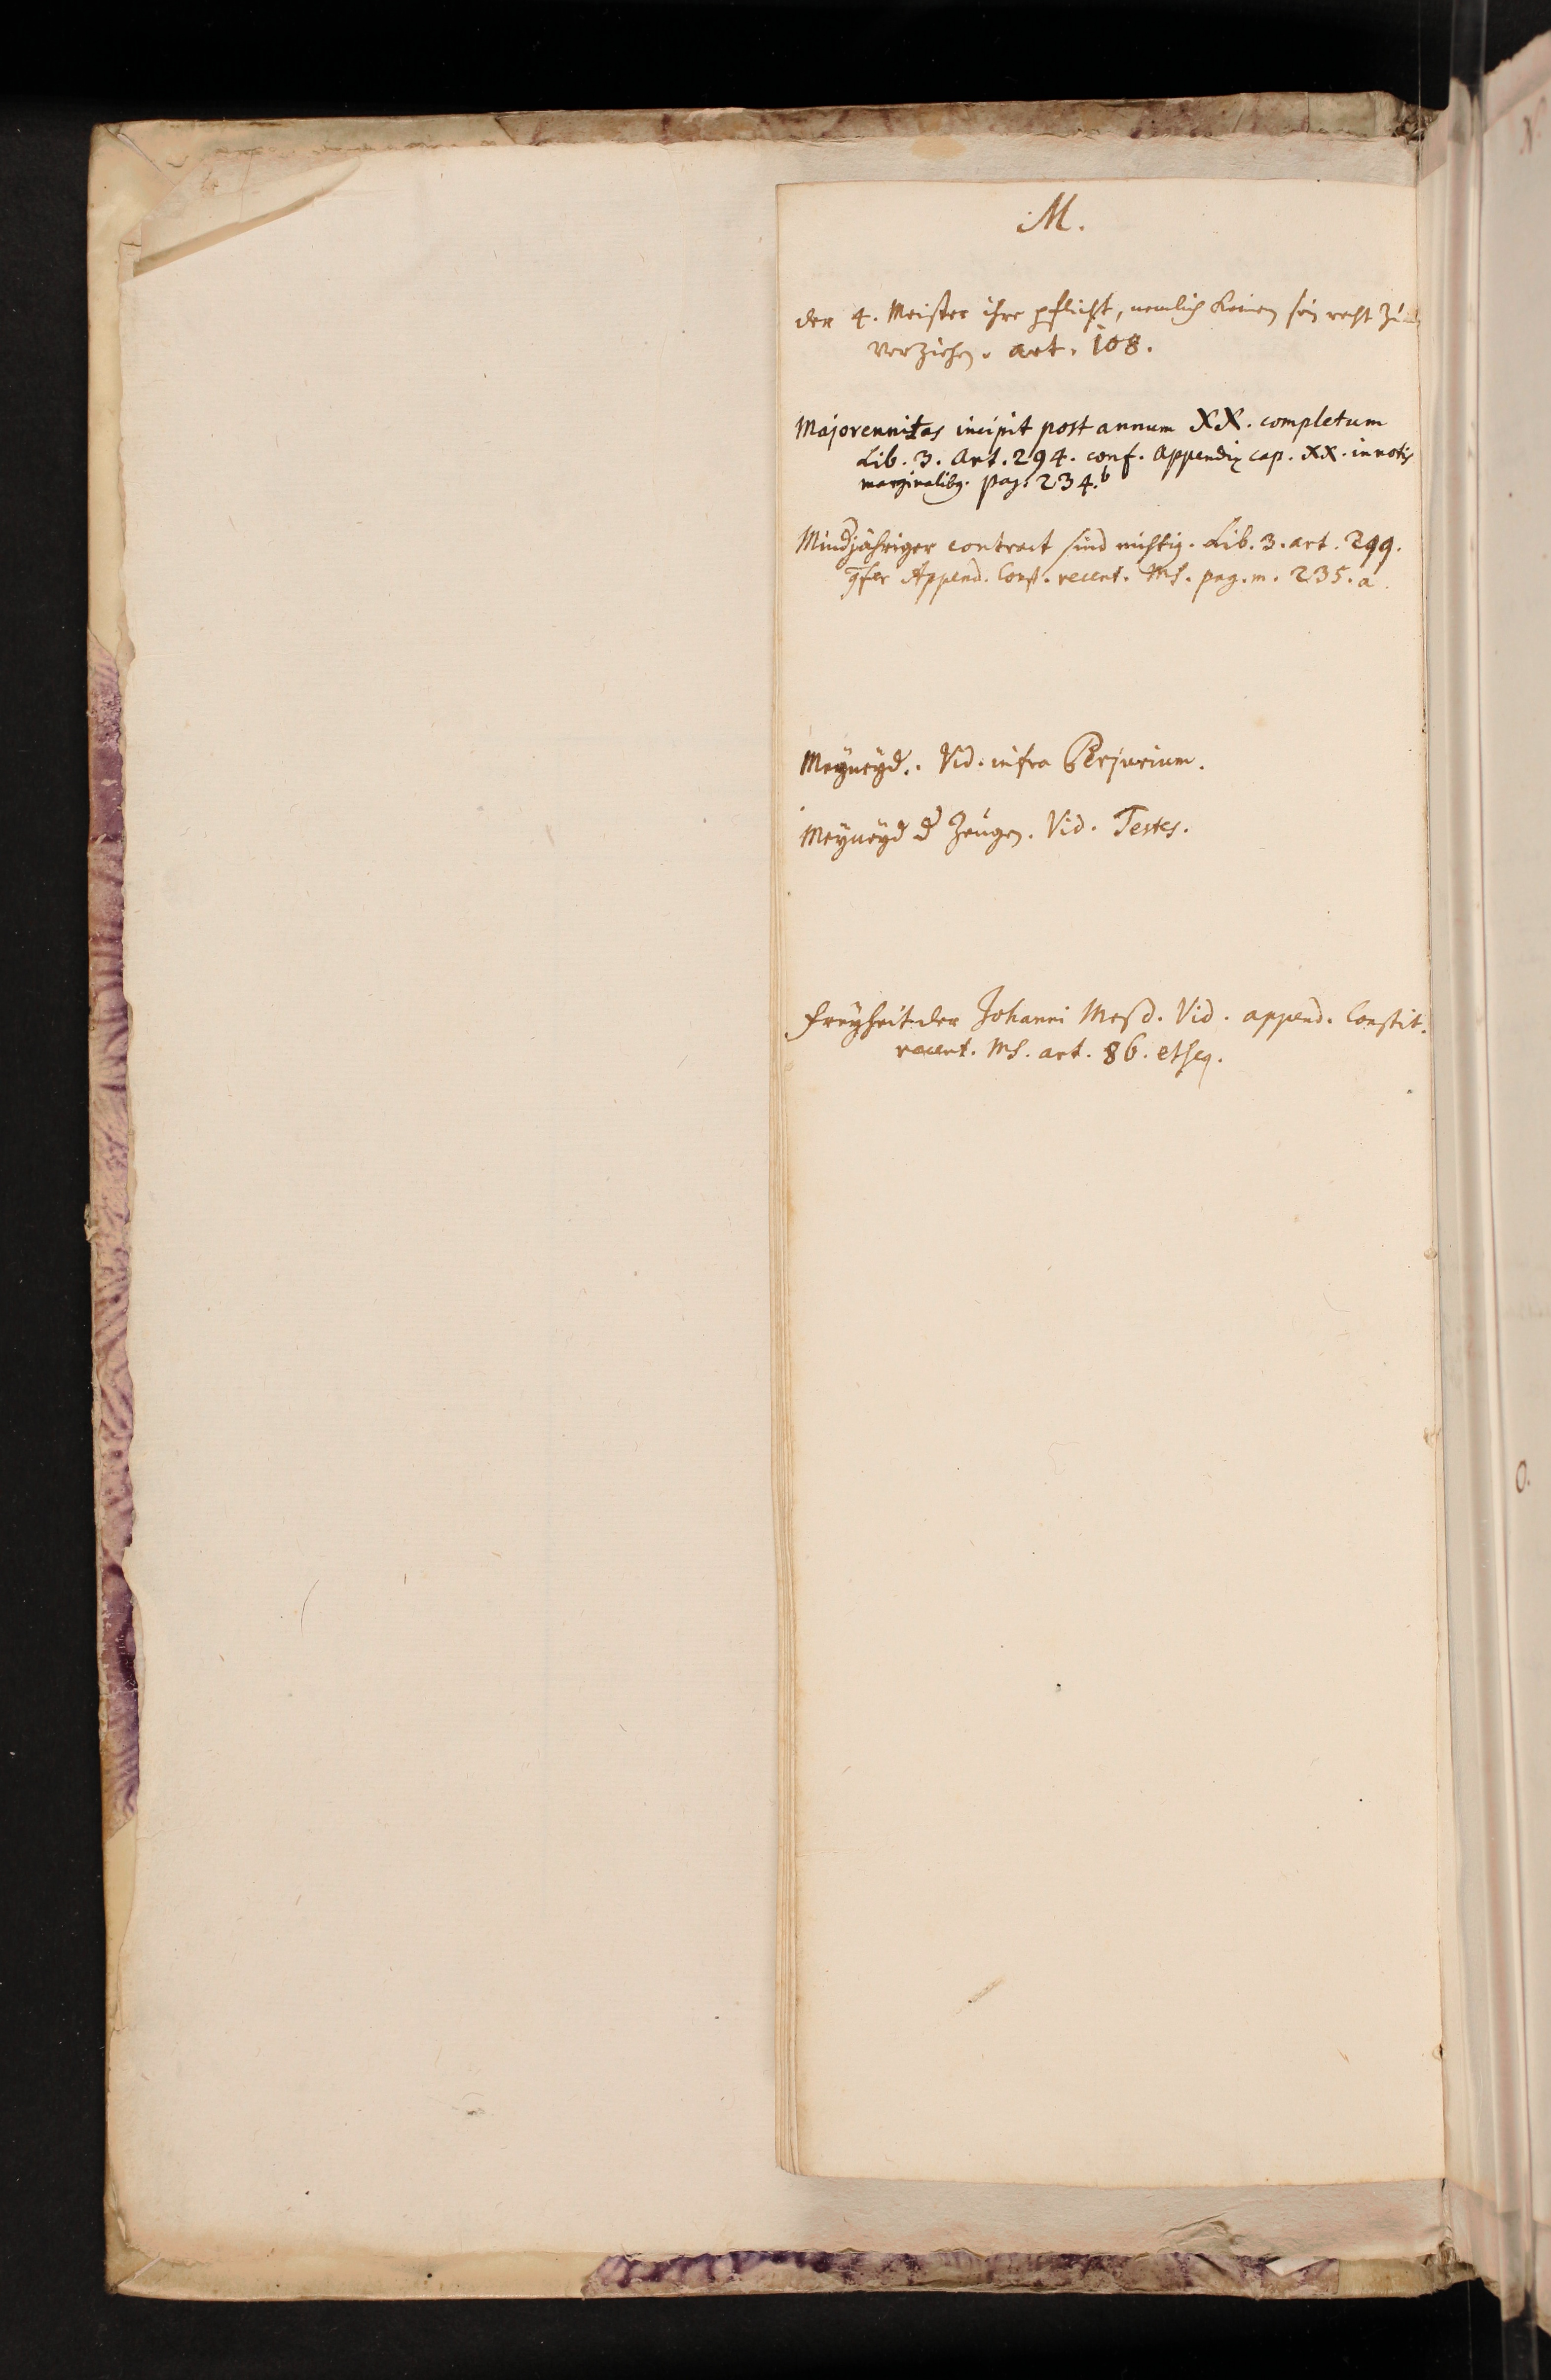 M.
der 4. Meister ihre pflicht, nemlich keinen sein recht zu
verziehen. art. 108.
Majorennitas incipit post annum XX. completum
Lib. 3. Art. 294. conf. Appendix cap. XX. in notis
marginalibq. pag. 234.b
Mindjähriger contract sind nichtig. Lib. 3. art. 299.
Append. Const. recent. MS. pag. m. 235. a.
Meyneyd. Vid. infra Perjurium.
Meyneyd d Zeugen. Vid. Testes.
freyheit der Johanni Meß. Vid. append. Constit.
recent. MS. art. 86. et seq.
N.
O.